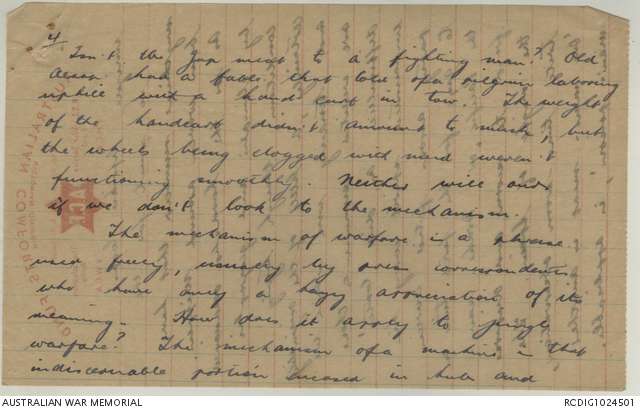 4/
Isn't the Jap meat to a fighting man? Old
Aesop had a fable that told of a pilgrim labouring
uphill with a hand cart in tow. The weight
of the handcart didn't amount to much, but
the wheels being clogged with mud weren't
functioning smoothly. Neither will ours
if we don't look to the mechanism.
The mechanism of warfare is a phrase
used freely, usually by press correspondents
who have only a hazy appreciation of its
meaning. How does it apply to jungle
warfare? The mechanism of a machine is that
indiscernable portion encased in hubs and
AUSTRALIAN COMFORTS FUND
AUSTRALIAN WAR MEMORIAL
RCDIG1024501